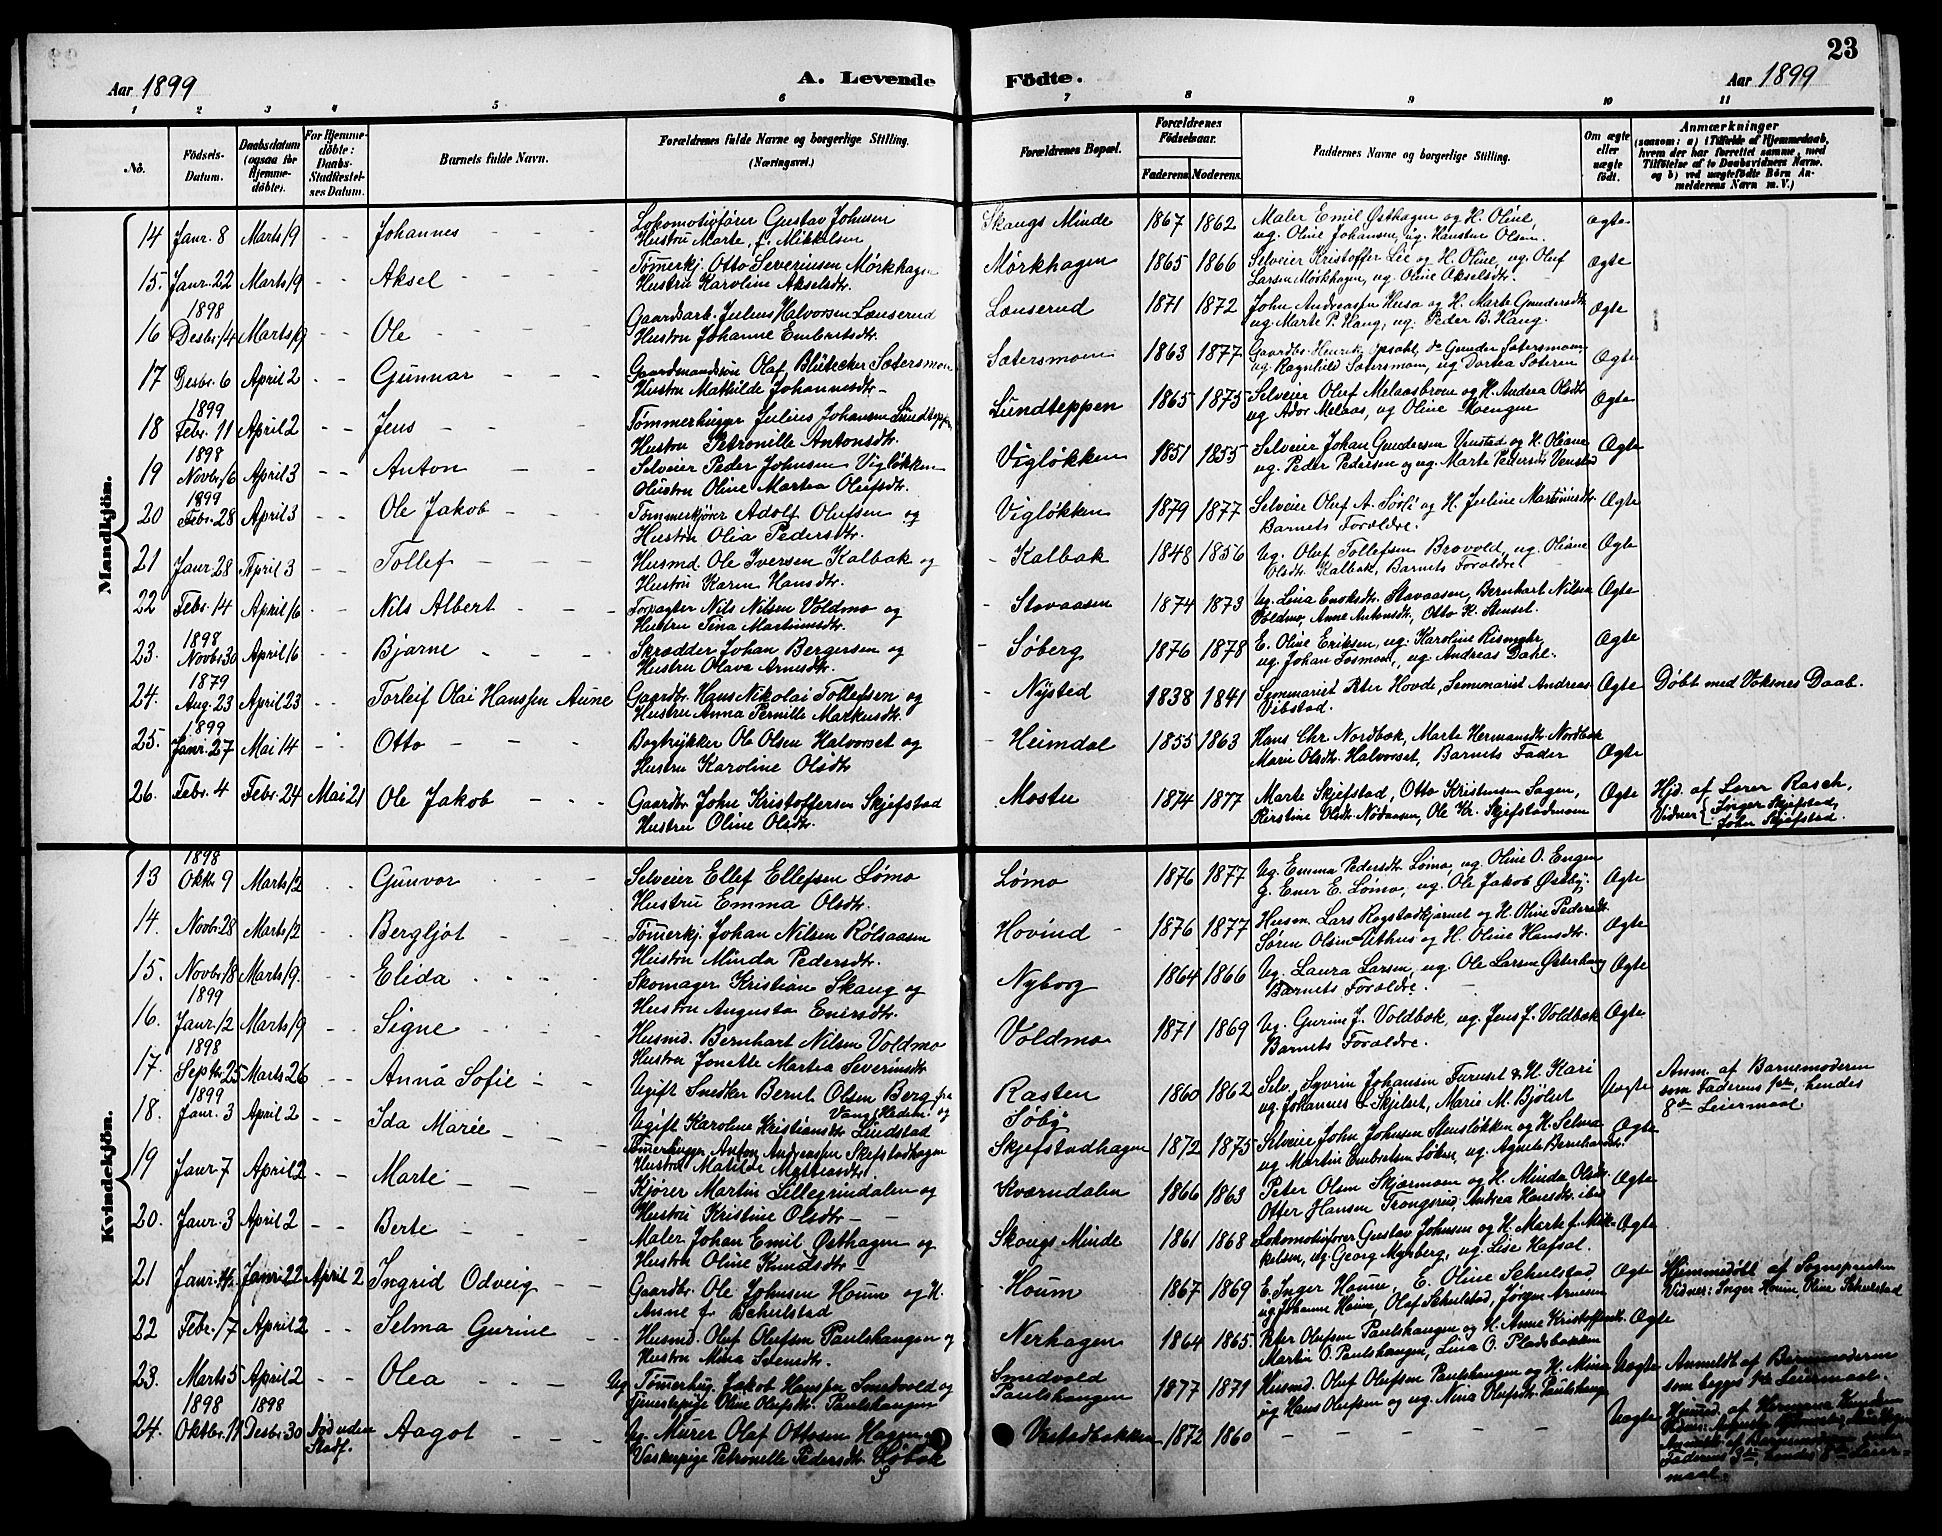 23
Aar 1899
A. Levende Födte.
Aar 1899
1 2 3 4 5 6 7 8 9 10 11
No.
Födsels-
Datum.
Daabsdatum
(ogsaa for
Hjemme-
döbte).
For Hjemme-
döbte:
Daabs-
Stadfæstel-
ses Datum.
Barnets fulde Navn.
Forældrenes fulde Navne og borgerlige Stilling.
(Næringsvei.)
Forældrenes Bopæl.
Forældrenes
Födselsaar.
Faderens Moderens
Faddernes Navne og borgerlige Stilling.
Om ægte
eller
uægte
födt.
Anmærkninger
(saasom: a) i Tilfælde af Hjemmedaab,
hvem der har forrettet samme, med
Tilföielse af to Daabsvidners Navne.
og b) ved uægtefödte Börn An-
melderens Navn m. V.)
Mandkjön.
14 Janr. 8 Marts 19 - - Johannes - - -
Lokomotivfører Gustav Johnsen
Hustru Marte, f. Mikkelsen
Skaugs Minde 1867 1862
Maler Emil Østhagen og H. Oline,
ug. Oline Johansen, ug. Hanstine Olsen.
Ægte
15. Janr. 22 Marts 19 - - Aksel - - - -
Tømerkj. Otto Severinsen Mørkhagen
Hustru Karoline Akselsdtr.
Mørkhagen 1865 1866
Selveier Kristoffer Lie og H. Oline, ug. Oluf
Larsen Mørkhagen, ug. Oline Akselsdtr.
Ægte
1898
16 Desbr. 14 Marts 19 - - Ole - - - -
Gaardsarb. Julius Halvorsen Lænserud
Hustru Johanne Embretsdtr.
Lænserud 1871 1872
John Andreassen Husa og H. Marte Gundersdtr.
ug. Marte P. Haug, ug. Peder B. Haug.
Ægte
17 Desbr. 6 April 2 - - Gunnar - - -
Gaardmandssøn Olaf Blütecker Sætersmoen
Hustru Mathilde Johannesdtr.
Sætersmoen 1863 1877
Gaardbr. Henrik Opsahl, do Gunder Sætersmoen,
ug. Ragnhild Sætersmoen, ug Dortea Sæteren
Ægte
1899
18 Febr. 11 April 2 - - Jens - - -
Tømmerhugger Julius Johansen Lundteppen
Hustru Petronille Antonsdtr.
Lundteppen 1865 1875
Selveier Oluf Melaasbroen og H. Andrea Olsdtr.
ug Ador Melaas, ug Oline Moengen
Ægte
1898
19 Novbr. 16 April 3 - - Anton - -
Selveier Peder Johnsen Vigløkken
Hustru Oline Martea Olufsdtr.
Vigløkken 1851 1855
Selveier Johan Gundersen Venstad og H. Oliane
ug. Peder Pedersen og ug. Marte Pedersdtr. Venstad
Ægte
1899
20 Febr. 28 April 3 - - Ole Jakob - - -
Tømmerkjører Adolf Olufsen og
Hustru Olia Pedersdtr.
Vigløkken 1879 1877
Selveier Oluf A. Sørlie og H. Juline Martinusdtr.
Barnets Forældre.
Ægte
21 Janr. 28 April 3 - - Tollef - - -
Husmd. Ole Iversen Kalbak og
Hustru Karen Hansdtr.
Kalbak 1848 1856
Ug. Oluf Tollefsen Brovold, ug. Oliane
Olsdtr. Kalbak, Barnets Forældre
Ægte
22 Febr. 14 April 16 - - Nils Albert - - -
Forpagter Nils Nilsen Voldmo og
Hustru Tina Martinusdtr.
Stavaasen 1874 1873
Ug. Lina Enoksdtr. Stavaasen, Bernhart Nilsen
Voldmo, Anne Antonsdtr., Otto K. Stenset.
Ægte
1898
23. Novbr. 30 April 16 - - Bjarne - - -
Skrædder Johan Bergersen og
Hustru Olava Arnesdtr.
Søberg 1876 1878
E. Oline Eriksen, ug. Karoline Rismyhr,
ug. Johan Fosmoen, ug Andreas Dahl.
Ægte
1879
24. Aug. 23 April 23 - - Torleif Olai Hanssen Aune
Gaardbr. Hans Nikolai Tollefsen og
Hustru Anna Pernille Markusdtr.
Nysted 1838 1841
Seminarist Peter Hovde, Seminarist Andreas
Vibstad.
Ægte Døbt med Voksnes Daab.
1899
25. Janr. 27 Mai 14 - - Otto - - -
Bogtrykker Ole Olsen Halvorset og
Hustru Karoline Olsdtr
Heimdal 1855 1863
Hans Chr. Nordbæk, Marte Hermansdtr. Nordbæk
Marie Olsdtr. Halvorset, Barnets Fader
Ægte
26. Febr. 4 Febr. 24 Mai 21 Ole Jakob - - -
Gaardbr. John Kristoffersen Skjefstad
Hustru Oline Olsdtr.
Mostu 1874 1877
Marte Skjefstad, Otto Kristensen Sagen,
Kerstine Olsdtr. Nødaasen, Ole Kr. Skjefstadmoen
Ægte
Hjd. af Lærer Rasch,
Vidner { Inger Skjefstad,
John Skjefstad.
Kvindekjön.
1898
13 Oktbr 9 Marts 12 - - Gunvor - - -
Selveier Ellef Ellefsen Lømo
Hustru Emma Olsdtr.
Lømo 1876 1877
Ug. Emma Pedersdtr. Lømo, ug. Oline O. Engen
g. Ener E. Lømo, ug. Ole Jakob Østby.
Ægte
14. Novb. 28 Marts 12 - - Bergljot - - -
Tømerkj. Johan Nilsen Rølsaasen
Hustru Minda Pedersdtr.
Hovind 1876 1877
Husm. Lars Rogstadkjærnet og H. Oline Pedersdtr.
Søren Olsen Uthus og H. Oline Hansdtr.
Ægte
15. Novbr. 18 Marts 19. - - Elida - - - -
Skomager Kristian Skaug og
Hustru Augusta Enersdtr.
Nyborg 1864 1866
Ug. Laura Larsen, ug. Ole Larsen Østerhaug
Barnets Forældre.
Ægte
1899
16. Janr. 12 Marts 19 - - Signe - - -
Husmd. Bernhart Nilsen Voldmo
Hustru Jonette Martea Severinsdtr
Voldmo 1871 1869
Ug. Gurine J. Voldbæk, ug. Jens J. Voldbæk
Barnets Forældre.
Ægte
1898
17. Septbr. 25 Marts 26 - - Anna Sofie - -
Ugift Snedker Bernt Olsen Berg fra
Vang, Hedem. og
Ugift Karoline Kristiansdtr Lindstad
Rasten
Søby
1860 1862
Selv. Syverin Johansen Furuset & H. Kari
ug. Johannes L Skjelset, Marie M. Bjølset
Uægte
Anm. af Barnemoderen
som Faderens 1ste, hendes
8de Leiermaal
1899
18. Janr. 3 April 2 - - Ida Marie - - -
Tømerhugger Anton Andreassen Skjefstadhagen
Hustru Matilde Mattiasdtr.
Skjefstadhagen 1872 1875
Selveier John Johnsen Stensløkken og H. Selma
ug Martin Embretsen Løken, ug. Agnete Bernhardsdtr.
Ægte
19 Janr. 7 April 2 - - Marte - - -
Kjører Martin Lillegrindalen og
Hustru Kristine Olsdtr. - -
Kværndalen 1866 1863
Peter Olsen Skjærmoen og H. Minda Olsdtr.
Otter Hansen Trongsrud, Andrea Hansdtr. ibid
Ægte
20. Janr. 3 April 2 - - Berte - - -
Maler Johan Emil Østhagen og
Hustru Oline Knudsdtr. -
Skaugs Minde 1861 1868
Lokomotivfører Gustav Johnsen og H. Marte f. Mik-
kelsen, ug Georg Myrberg, ug. Lise Hafsal.
Ægte
21 Janr. Janr. 22 April 2 Ingrid Odveig - -
Gaardbr. Ole Johnsen Houm og H.
Anne f. Schulstad
Houm 1867 1869
E. Inger Houm, E. Oline Schulstad,
ug Johanne Houm, Olaf Schulstad, Jørgen Arnesen
Ægte
Hjemmedøbt af Sognepresten
Vidner: Inger Houm Oline Schulstad
22 Febr. 17 April 2 - - Selma Gurine - -
Husmd. Oluf Olufsen Paulshaugen og
Hustru Mina Svensdtr.
Nerhagen 1864 1865.
Peter Olufsen Paulshaugen og H. Anne Kristoffersdtr
Martin O. Paulshaugen, Lina O. Pladsbakken
Ægte
23. Marts 5 April 2 - - Olea - - -
Ug Tømerhug. Jakob Hanssen Smedvold og
Tjenestepige Oline Olufsdtr. Paulshaugen
Smedvold
Paulshaugen
1877 1871
Husmd. Oluf Olufsen Paulshaugen og H. Mina
ug Hans Olufsen og ug. Nina Olufsdtr. Paulshaug
Uægte
Anmeldt af Barnemoderen
som begges 1ste Leiermaal.
1898 1898
24. Oktbr. 11 Desbr. 30 Død uden
Stadf.
Aagot - - -
Ug. Murer Olaf Ottosen Hagen og
Vaskepige Petronelle Pedersdtr. Løbak
Vestadbakken 1872 1860 - - - -
Uægte
Hjmd. af Hermana
Faderens 3die, hendes 8de Leier-
maal.